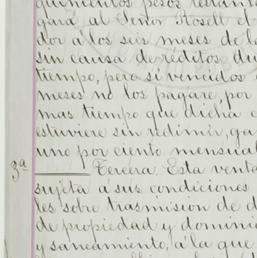 quinientos pesos restant
gará al Señor Rosell d
dor á los seis meses de l
sin causa de réditos du
tiempo, pero si vencidos
meses no los pagare, por
mas tiempo que dicha c
estuviere sin redimir, ga
uno por ciento mensual
3ª Tercera. Esta vent
sujeta á sus condiciones
les sobre trasmision de d
de propiedad y domini
y saneamiento, á la que